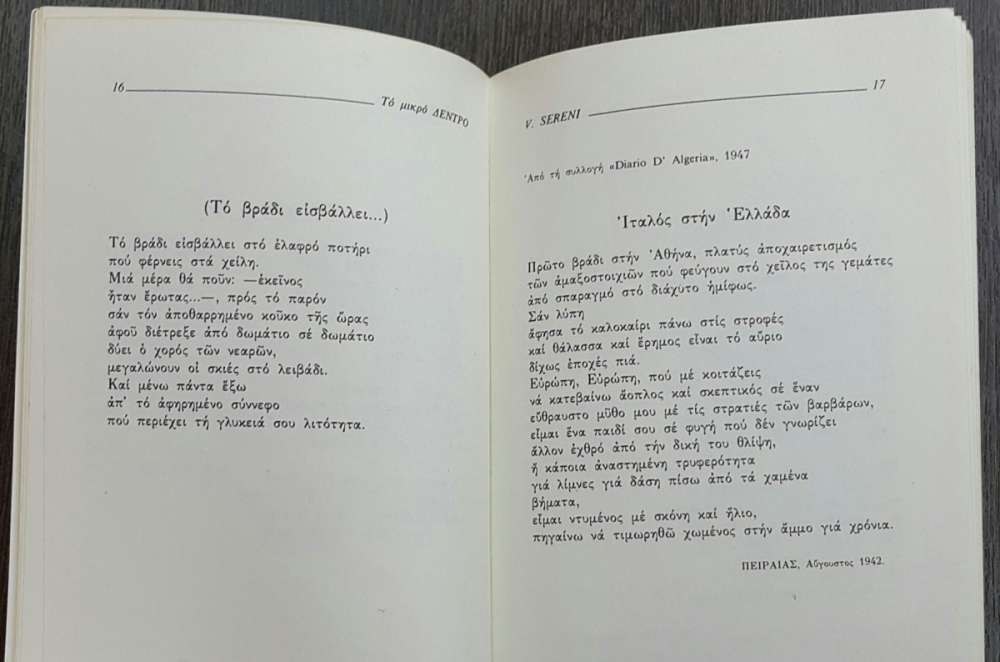 16
Τό μικρό ΔΕΝΤΡΟ
(Τό βράδι εἰσβάλλει...)
Τό βράδι εἰσβάλλει στό ἐλαφρό ποτήρι
πού φέρνεις στά χείλη.
Μιά μέρα θά ποῦν: —ἐκεῖνος
ἦταν ἔρωτας...—, πρός τό παρόν
σάν τόν ἀποθαρρημένο κοῦκο τῆς ὥρας
ἀφοῦ διέτρεξε ἀπό δωμάτιο σέ δωμάτιο
δύει ὁ χορός τῶν νεαρῶν,
μεγαλώνουν οἱ σκιές στό λειβάδι.
Καί μένω πάντα ἔξω
ἀπ' τό ἀφηρημένο σύννεφο
πού περιέχει τή γλυκειά σου λιτότητα.
V. SERENI
17
Ἀπό τή συλλογή «Diario D' Algeria», 1947
Ἰταλός στήν Ἑλλάδα
Πρῶτο βράδι στήν Ἀθήνα, πλατύς ἀποχαιρετισμός
τῶν ἁμαξοστοιχιῶν πού φεύγουν στό χεῖλος της γεμάτες
ἀπό σπαραγμό στό διάχυτο ἡμίφως.
Σάν λύπη
ἄφησα τό καλοκαίρι πάνω στίς στροφές
καί θάλασσα καί ἔρημος εἶναι τό αὔριο
δίχως ἐποχές πιά.
Εὐρώπη, Εὐρώπη, πού μέ κοιτάζεις
νά κατεβαίνω ἄοπλος καί σκεπτικός σέ ἕναν
εὔθραυστο μῦθο μου μέ τίς στρατιές τῶν βαρβάρων,
εἶμαι ἕνα παιδί σου σέ φυγή πού δέν γνωρίζει
ἄλλον ἐχθρό ἀπό τήν δική του θλίψη,
ἤ κάποια ἀναστημένη τρυφερότητα
γιά λίμνες γιά δάση πίσω ἀπό τά χαμένα
βήματα,
εἶμαι ντυμένος μέ σκόνη καί ἥλιο,
πηγαίνω νά τιμωρηθῶ χωμένος στήν ἄμμο γιά χρόνια.
ΠΕΙΡΑΙΑΣ, Αὔγουστος 1942.